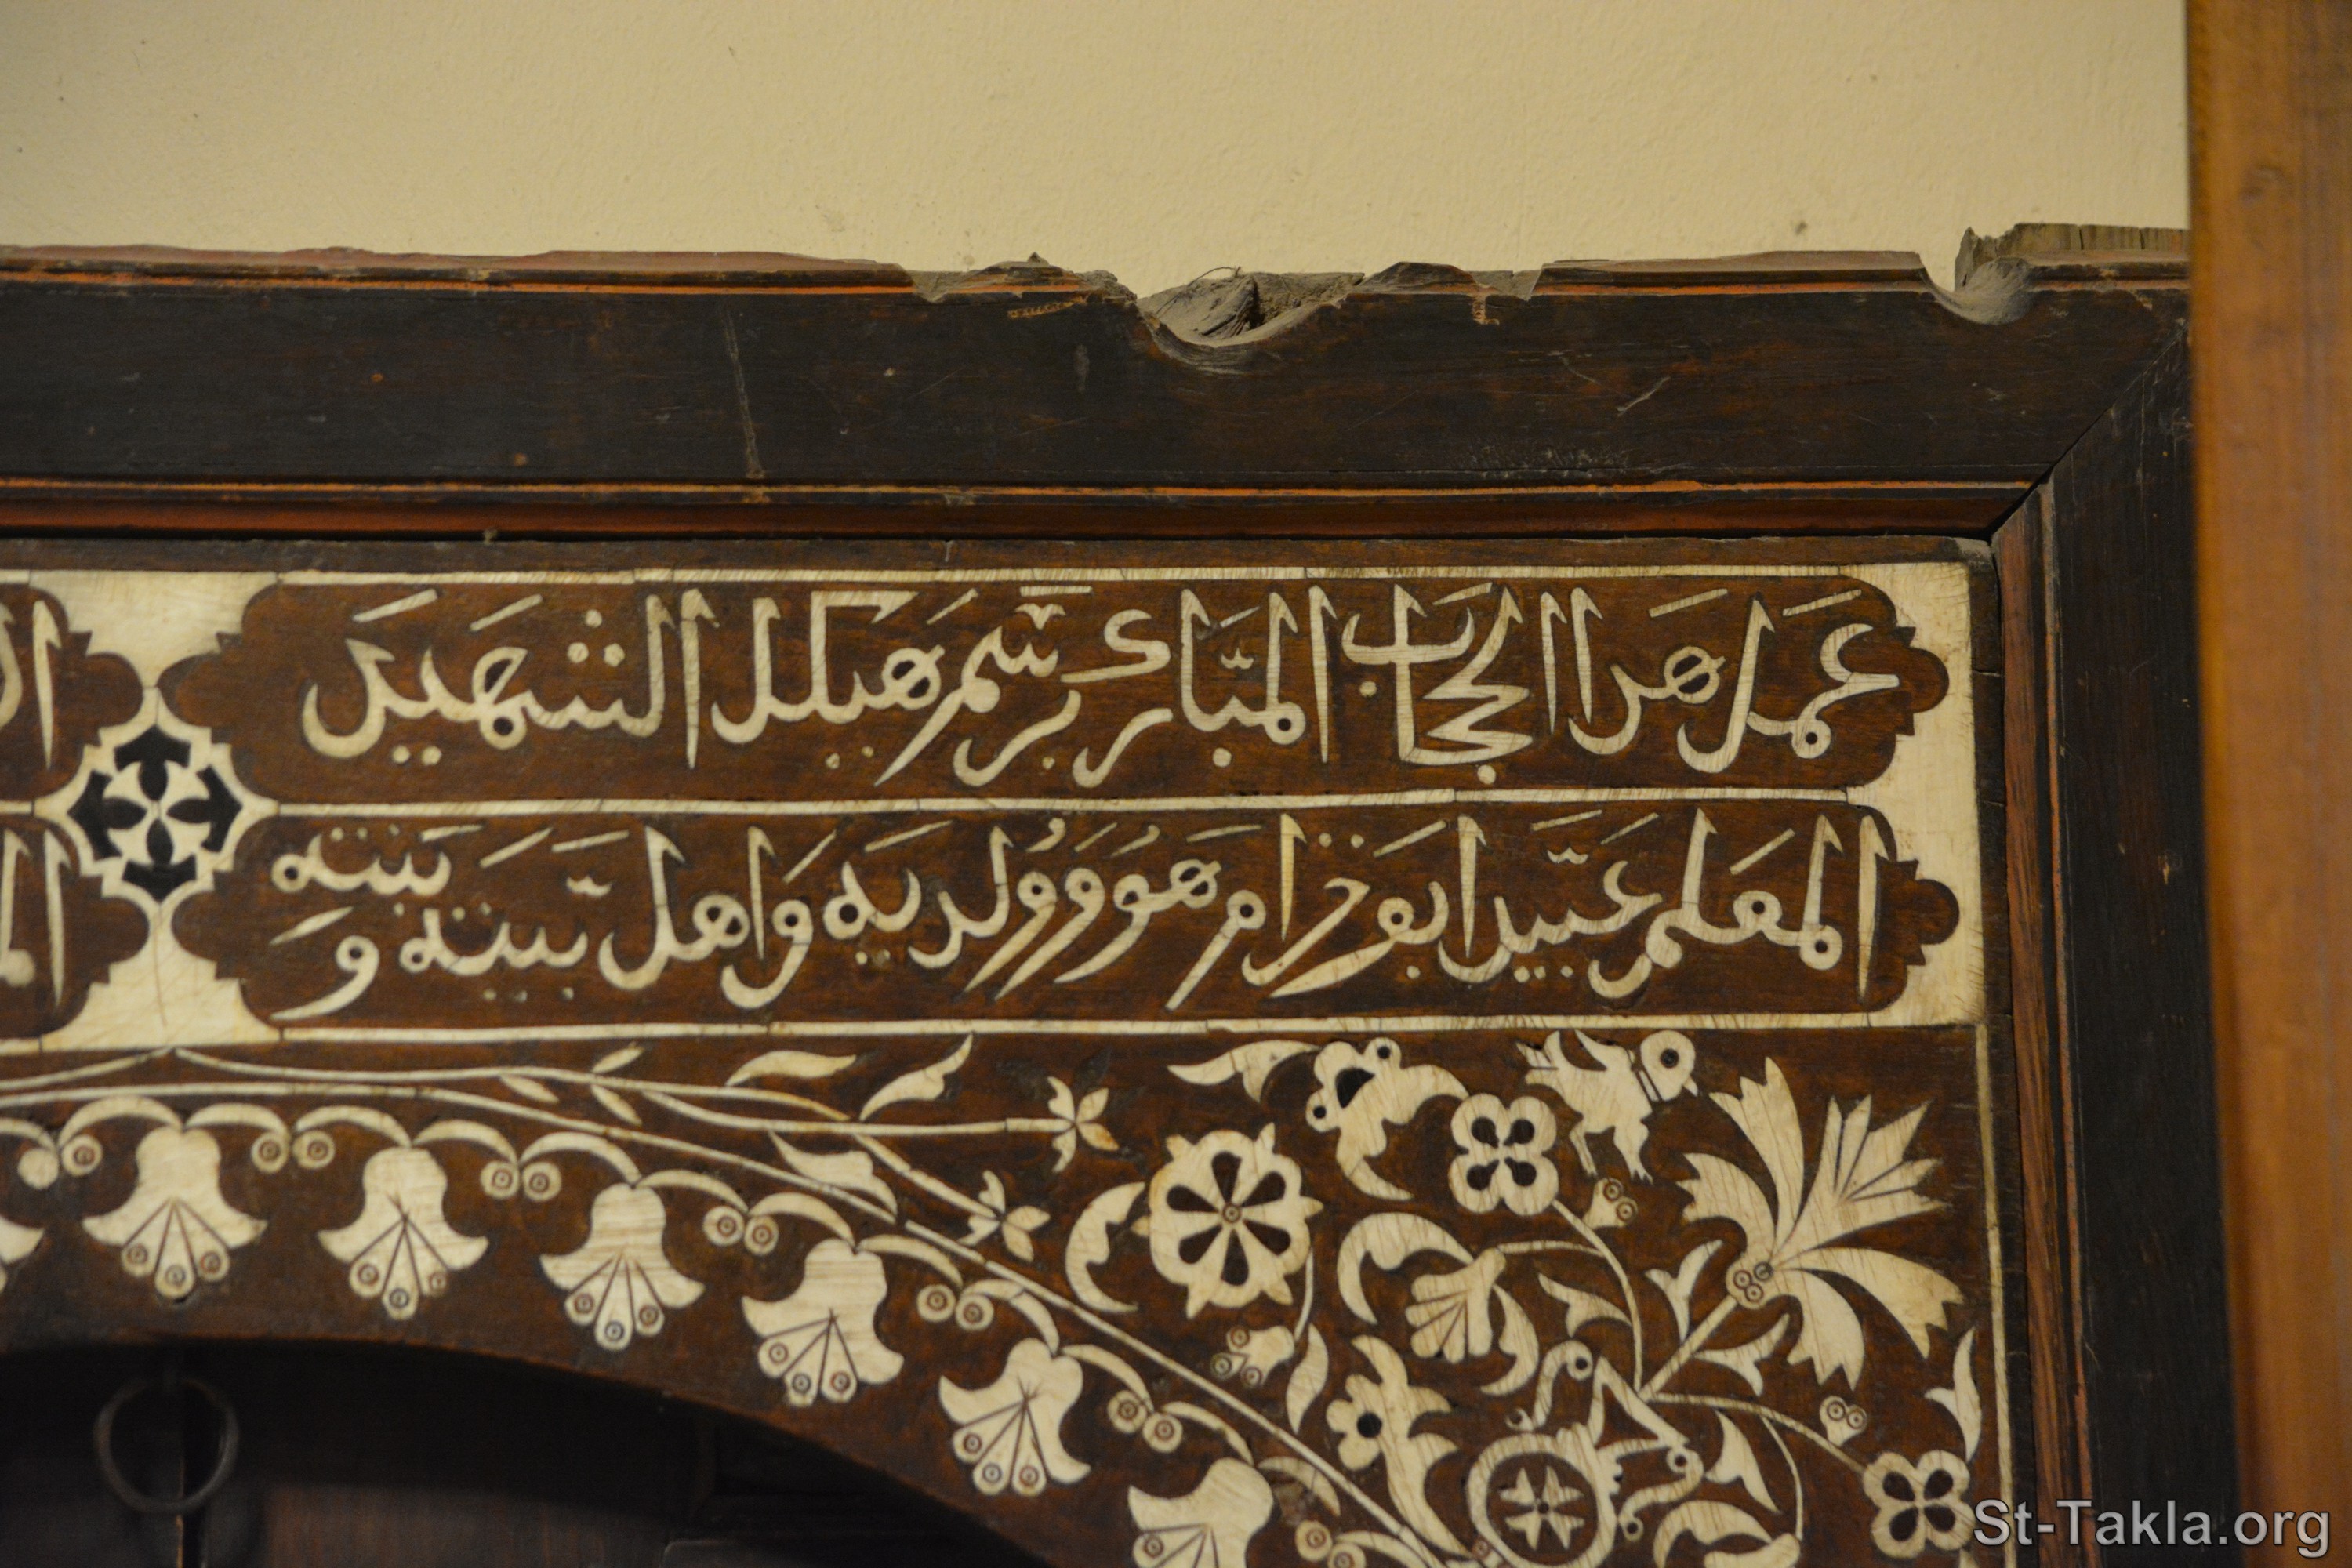 عمل هدا الحجاب المبارك برسم هيكل الشهيد
المعلم عبيد ابو خزام هو وولديه واهل بيته
St-Takla.org